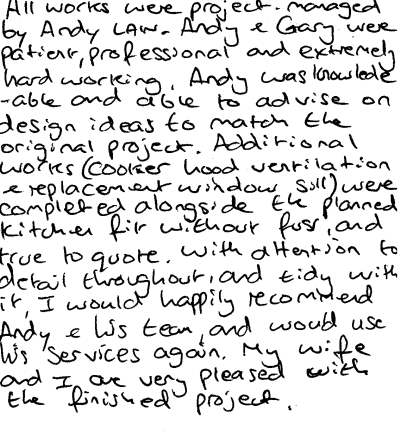 All works were project-managed
by Andy LAW. Andy & Gary were
patient, professional and extremely
hard working. Andy was knowledge
-able and able to advise on
design ideas to match the
original project. Additional
works (cooker hood ventilation
& replacement window sill) were
completed alongside the planned
kitchen fit without fuss, and
true to quote. With attention to
detail throughout, and tidy with
it, I would happily recommend
Andy & his team, and would use
his services again. My wife
and I are very pleased with
the finished project.